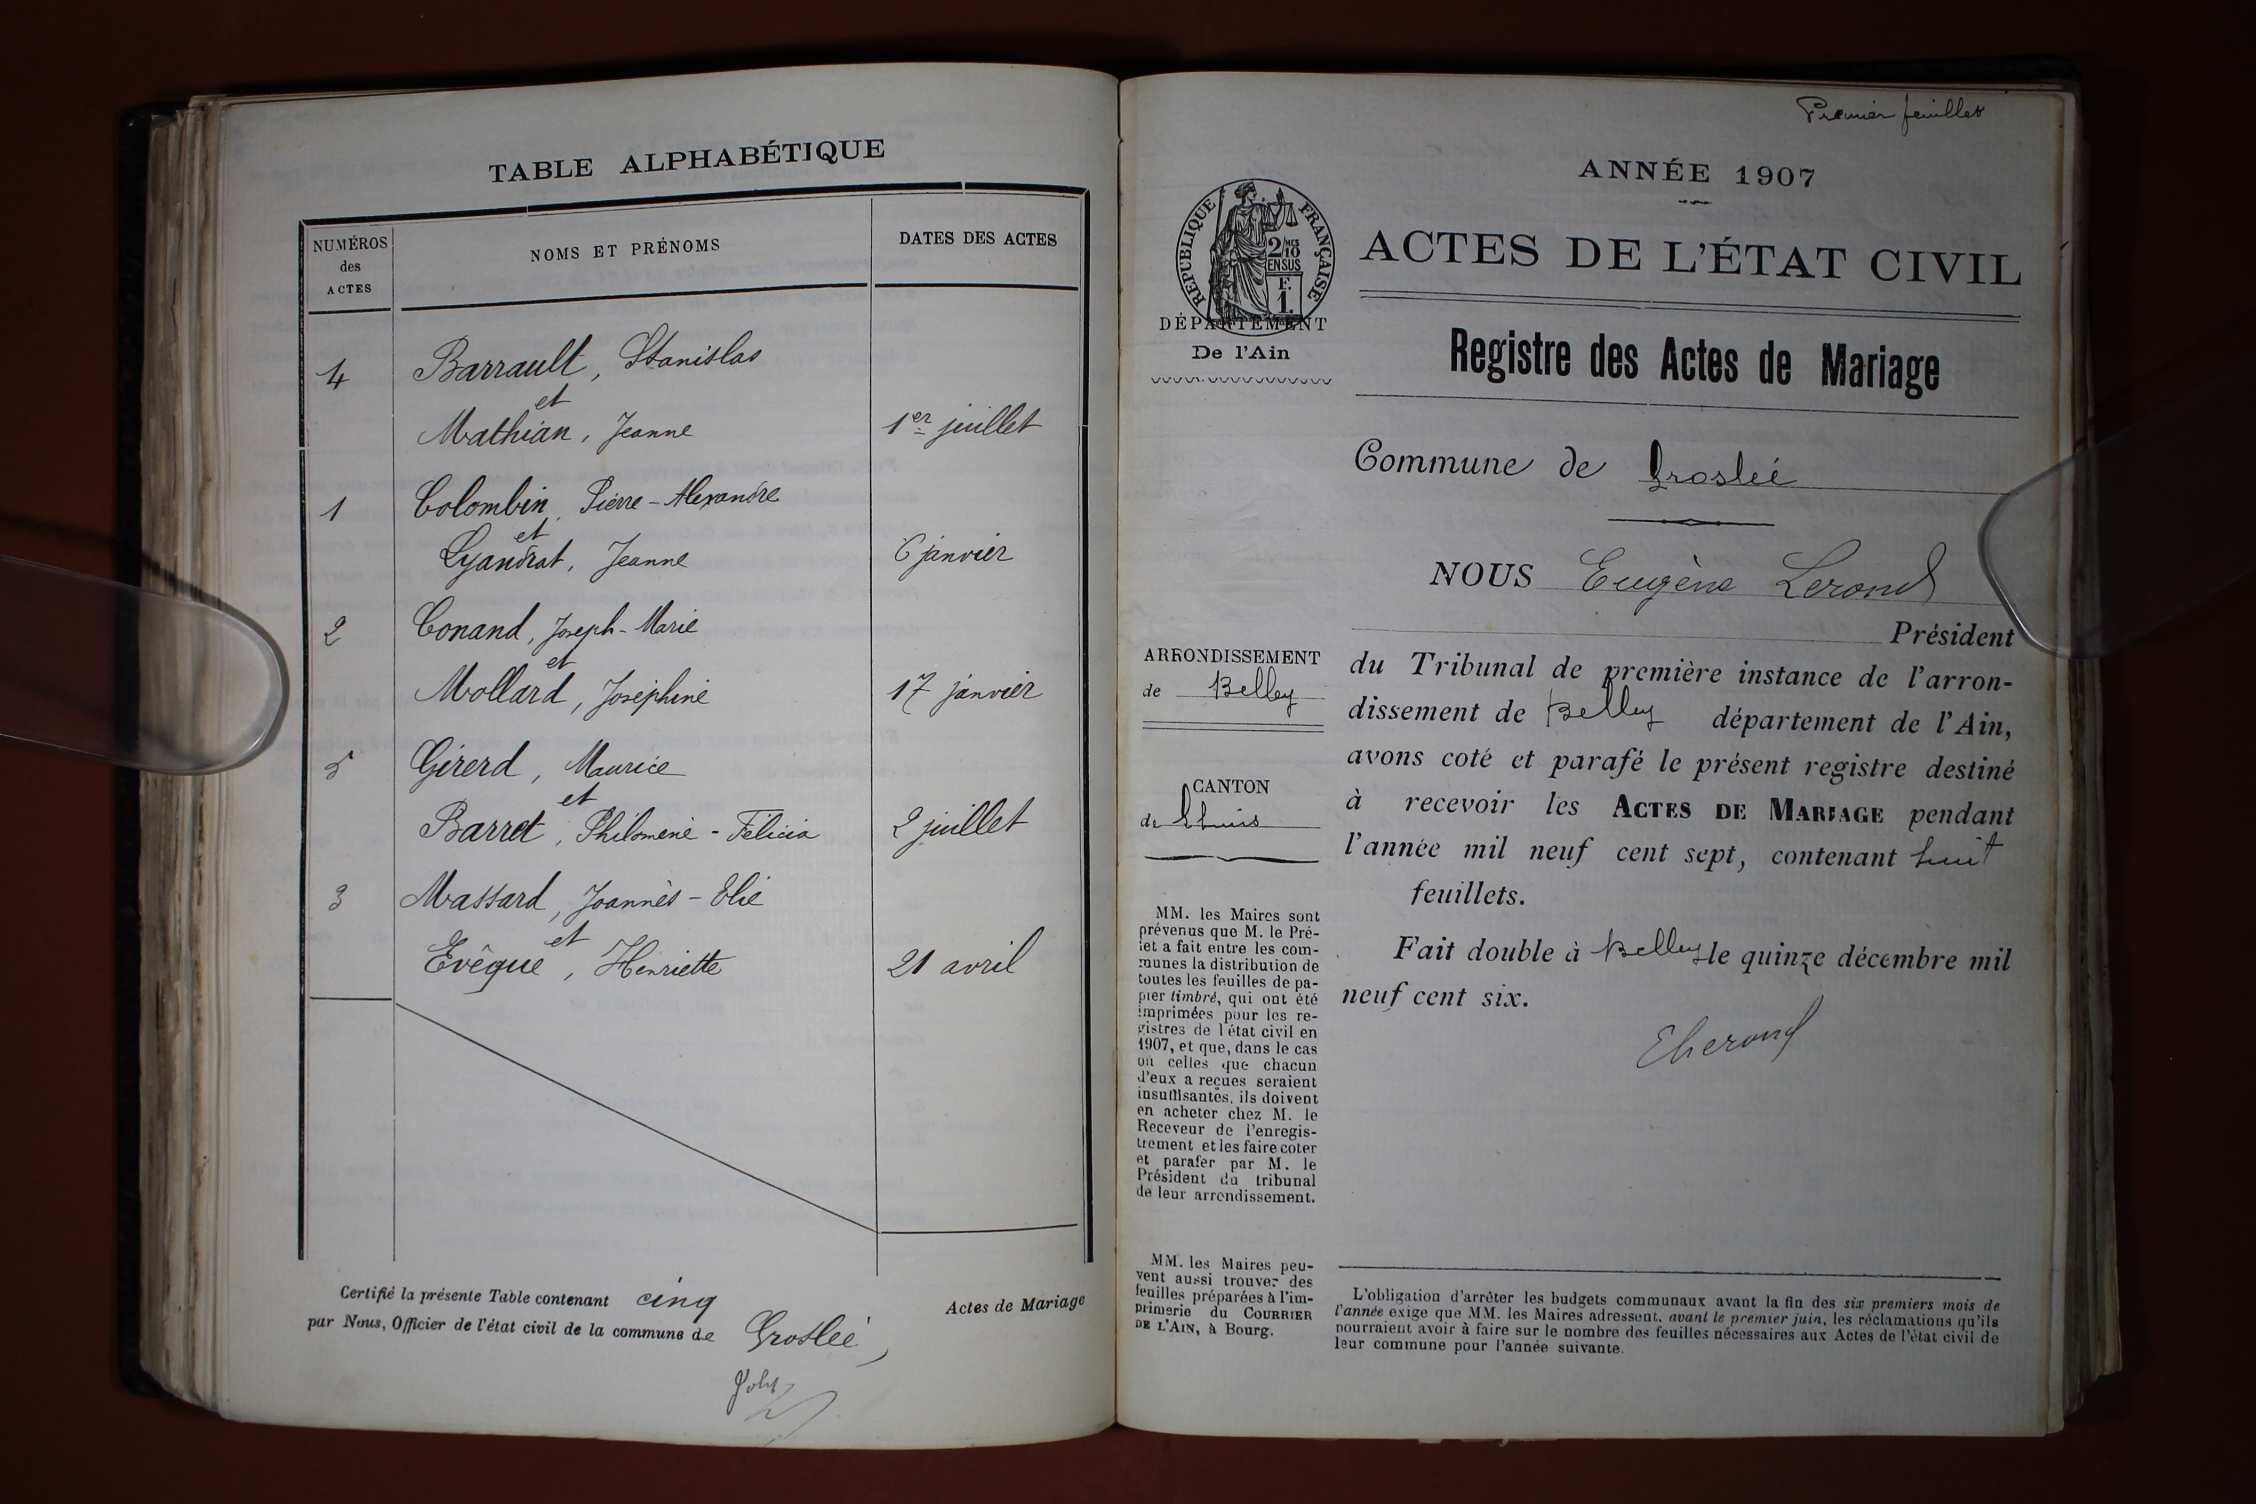 TABLE ALPHABÉTIQUE
NUMÉROS
des
ACTES
NOMS ET PRÉNOMS
DATES DES ACTES
4 Barrault, Stanislas
et
Mathian, Jeanne 1er juillet
1 Colombin, Pierre-Alexandre
et
Lyandrat, Jeanne 6 janvier
2 Conand, Joseph-Marie
et
Mollard, Joséphine 17 janvier
5 Girerd, Maurice
et
Barret, Philomène-Félicia 2 juillet
3 Massard, Joannès-Elie
et
Evêque, Henriette 21 avril
Certifié la présente Table contenant cinq Actes de Mariage
par Nous, Officier de l'état civil de la commune de Groslée,
Premier feuillet
ANNÉE 1907
RÉPUBLIQUE FRANÇAISE
2/10 MES
EN SUS
F.
1.
ACTES DE L'ÉTAT CIVIL
DÉPARTEMENT
De l'Ain
Registre des Actes de Mariage
Commune de Groslée
NOUS Eugène Lerond
Président
du Tribunal de première instance de l'arron-
dissement de Belley département de l'Ain,
avons coté et parafé le présent registre destiné
à recevoir les ACTES DE MARIAGE pendant
l'année mil neuf cent sept, contenant huit
feuillets.
Fait double à Belley le quinze décembre mil
neuf cent six.
ELerond
ARRONDISSEMENT
de Belley
CANTON
de Lhuis
MM. les Maires sont
prévenus que M. le Pré-
fet a fait entre les com-
munes la distribution de
toutes les feuilles de pa-
pier timbré, qui ont été
imprimées pour les re-
gistres de l'état civil en
1907, et que, dans le cas
où celles que chacun
d'eux a reçues seraient
insuffisantes, ils doivent
en acheter chez M. le
Receveur de l'enregis-
trement et les faire coter
et parafer par M. le
Président du tribunal
de leur arrondissement.
MM. les Maires peu-
vent aussi trouver des
feuilles préparées à l'im-
primerie du COURRIER
DE L'AIN, à Bourg.
L'obligation d'arrêter les budgets communaux avant la fin des six premiers mois de
l'année exige que MM. les Maires adressent, avant le premier juin, les réclamations qu'ils
pourraient avoir à faire sur le nombre des feuilles nécessaires aux Actes de l'état civil de
leur commune pour l'année suivante.